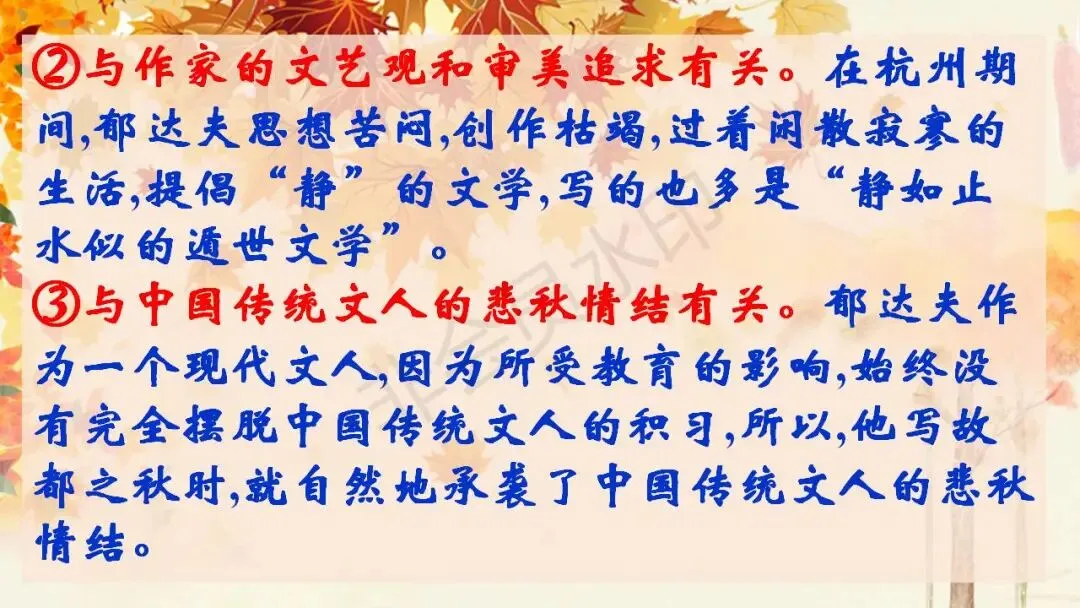 ②与作家的文艺观和审美追求有关。在杭州期
间,郁达夫思想苦闷,创作枯竭,过着闲散寂寥的
生活,提倡“静”的文学,写的也多是“静如止
水似的遁世文学”。
③与中国传统文人的悲秋情结有关。郁达夫作
为一个现代文人,因为所受教育的影响,始终没
有完全摆脱中国传统文人的积习,所以,他写故
都之秋时,就自然地承袭了中国传统文人的悲秋
情结。
非会员水印